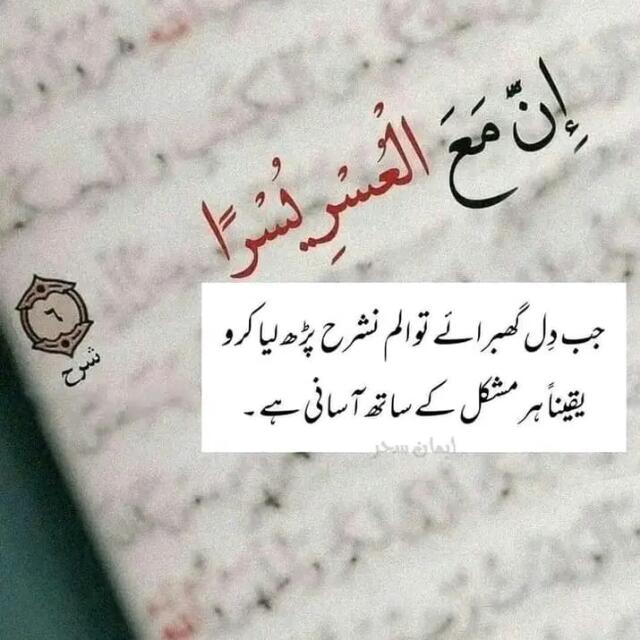 إِنَّ مَعَ الْعُسْرِ يُسْرًا
٦
شرح
جب دِل گھبرائے تو الم نشرح پڑھ لیا کرو
یقیناً ہر مشکل کے ساتھ آسانی ہے۔
ایمان سحر